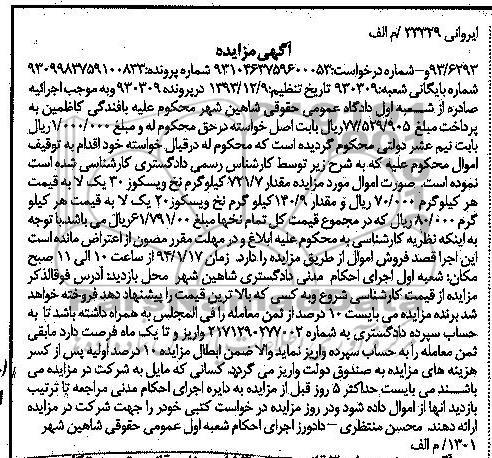 ایروانی ۲۳۳۲۹ /م الف
آگهی مزایده
۹۳/۶۲۹۳و–شماره درخواست:۹۳۱۰۴۶۳۷۵۹۶۰۰۰۵۳ شماره پرونده:۹۳۰۹۹۸۳۷۵۹۱۰۰۸۳۳
شماره بایگانی شعبه:۹۳۰۳۰۹ تاریخ تنظیم:۱۳۹۳/۱۲/۹ درپرونده ۹۳۰۳۰۹ وبه موجب اجرائیه
صادره از شعبه اول دادگاه عمومی حقوقی شاهین شهر محکوم علیه بافندگی کاظمین به
پرداخت مبلغ ۷۷/۵۲۹/۹۰۵ریال بابت اصل خواسته درحق محکوم له و مبلغ ۱/۰۰۰/۰۰۰ریال
بابت نیم عشر دولتی محکوم گردیده است که محکوم له درقبال خواسته خود اقدام به توقیف
اموال محکوم علیه که به شرح زیر توسط کارشناس رسمی دادگستری کارشناسی شده است
نموده است. صورت اموال مورد مزایده مقدار ۷۲۱/۷ کیلوگرم نخ ویسکوز ۳۰ یک لا به قیمت
هر کیلوگرم ۷۰/۰۰۰ ریال و مقدار ۱۳۰/۹کیلو گرم نخ ویسکوز۲۰ یک لا به قیمت هر کیلو
گرم ۸۰/۰۰۰ ریال که در مجموع قیمت کل تمام نخها مبلغ ۶۱/۷۹۱/۰۰۰ریال می باشد.با توجه
به اینکه نظریه کارشناسی به محکوم علیه ابلاغ و در مهلت مقرر مصون از اعتراض مانده است
این اجرا قصد فروش اموال از طریق مزایده را دارد. زمان ۹۴/۱/۱۷ از ساعت ۱۰ الی ۱۱ صبح
مکان: شعبه اول اجرای احکام مدنی دادگستری شاهین شهر محل بازدید آدرس فوقالذکر
مزایده از قیمت کارشناسی شروع وبه کسی که بالاترین قیمت را پیشنهاد دهد فروخته خواهد
شد برنده مزایده می بایست ۱۰ درصد از ثمن معامله را فی المجلس به همراه داشته باشد تا به
حساب سپرده دادگستری به شماره ۲۱۷۱۲۹۰۲۷۷۰۰۲ واریز و تا یک ماه فرصت دارد مابقی
ثمن معامله را به حساب سپرده واریز نماید والا ضمن ابطال مزایده ۱۰ درصد اولیه پس از کسر
هزینه های مزایده به صندوق دولت واریز می گردد. کسانی که مایل به شرکت در مزایده می
باشند می بایست حداکثر ۵ روز قبل از مزایده به دایره اجرای احکام مدنی مراجعه تا ترتیب
بازدید آنها از اموال داده شود ودر روز مزایده در خواست کتبی خودر را جهت شرکت در مزایده
ارائه دهند. محسن منتظری – دادورز اجرای احکام شعبه اول عمومی حقوقی شاهین شهر
۱۳۰۱/ م الف